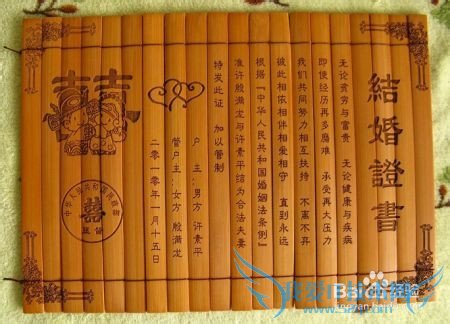 結婚證書
无论贫穷与富贵 无论健康与疾病
即使经历再多磨难 承受再大压力
我们共同努力相互扶持 不离不弃
彼此相依相伴相爱相守 直到永远
根据『中华人民共和国婚姻法条例』
准许殷满龙与许素平结为合法夫妻
特发此证 加以管制
户 主:男方 许素平
管户主:女方 殷满龙
二零一零年一月十五日
囍
中华人民共和国
囍